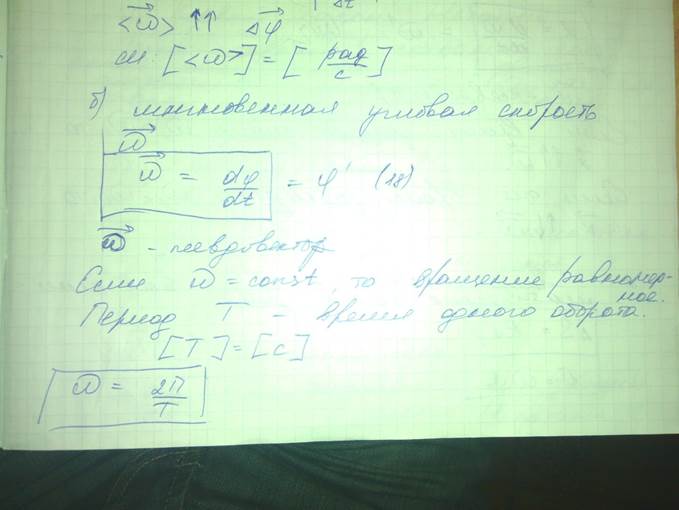 Δt
<ω⃗> ↑↑ Δφ⃗
см: [<ω>] = [рад/с]
б) мгновенная угловая скорость
ω⃗
ω⃗ = dφ/dt = φ' (18)
ω⃗ - псевдовектор
Если ω = const, то вращение равномер-
ное.
Период T - время одного оборота.
[T] = [c]
ω = 2π/T